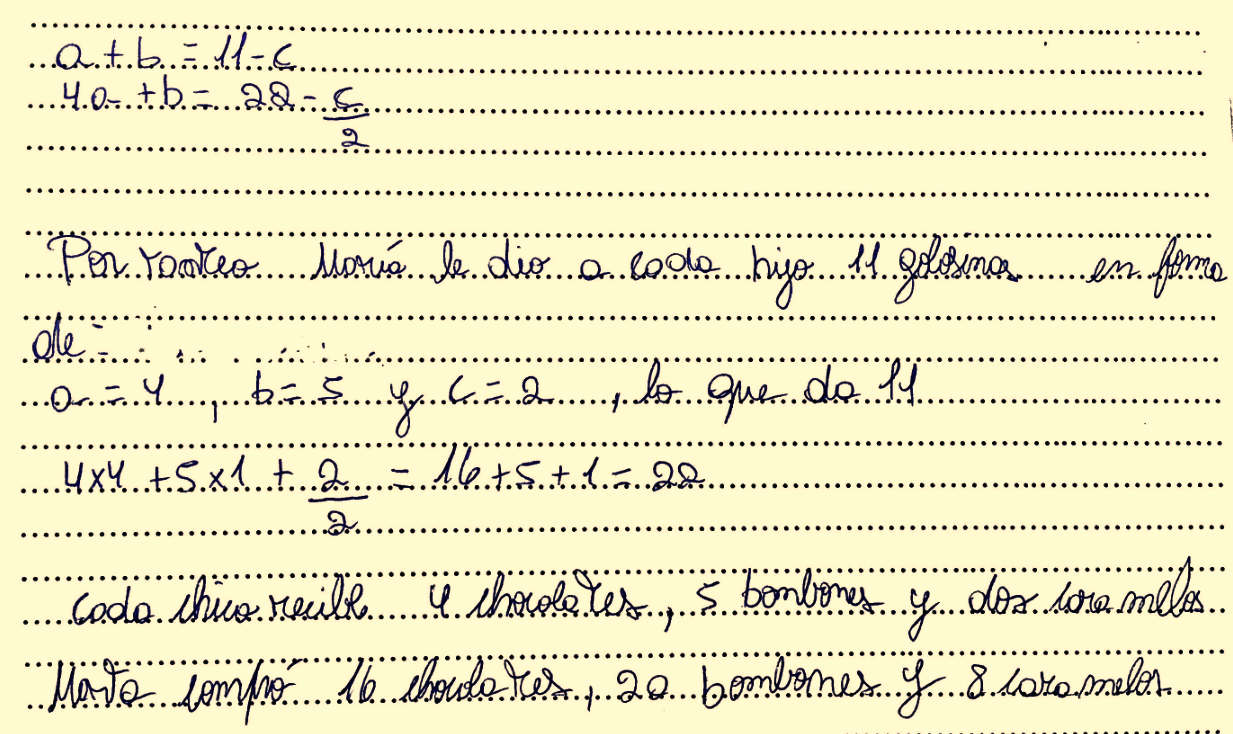 a + b = 11 - c
4a + b = 22 - c/2
Por tanteo María le dio a cada hijo 11 golosinas en forma
de
a = 4, b = 5 y c = 2, lo que da 11
4x4 + 5x1 + 2/2 = 16 + 5 + 1 = 22
cada chico recibe 4 chocolates, 5 bombones y dos caramelos
compró 16 chocolates, 20 bombones y 8 caramelos